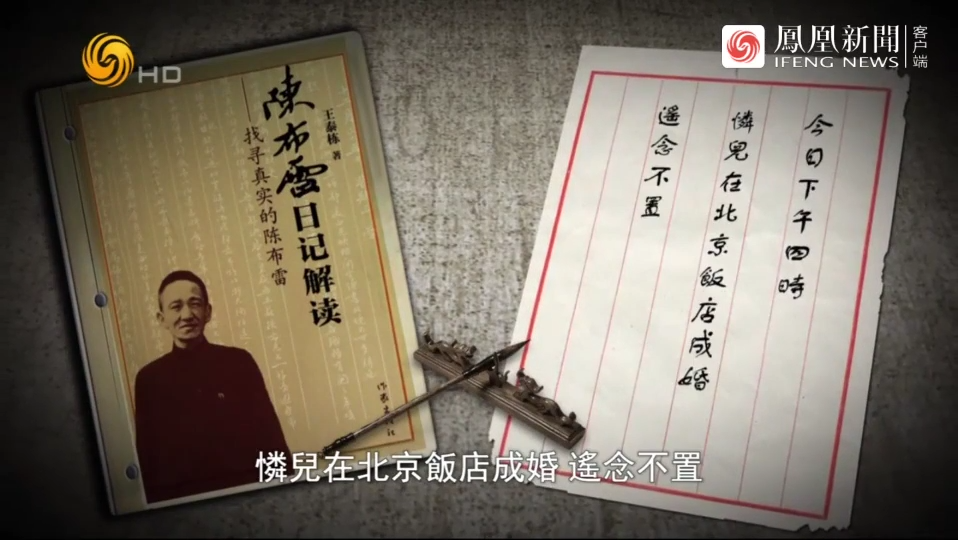 HD
鳳凰新聞
IFENG NEWS
客户端
陳布雷日记解读
——找寻真实的陈布雷
王泰栋 著
作家出版社
今日下午四時
憐兒在北京飯店成婚
遥念不置
憐兒在北京飯店成婚 遙念不置